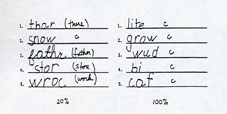 1. thar (thare)
2. snow c
3. fathr (father)
4. stor (store)
5. wroc (work)
20%
1. lite c
2. grow c
3. wud c
4. bi c
5. caf c
100%